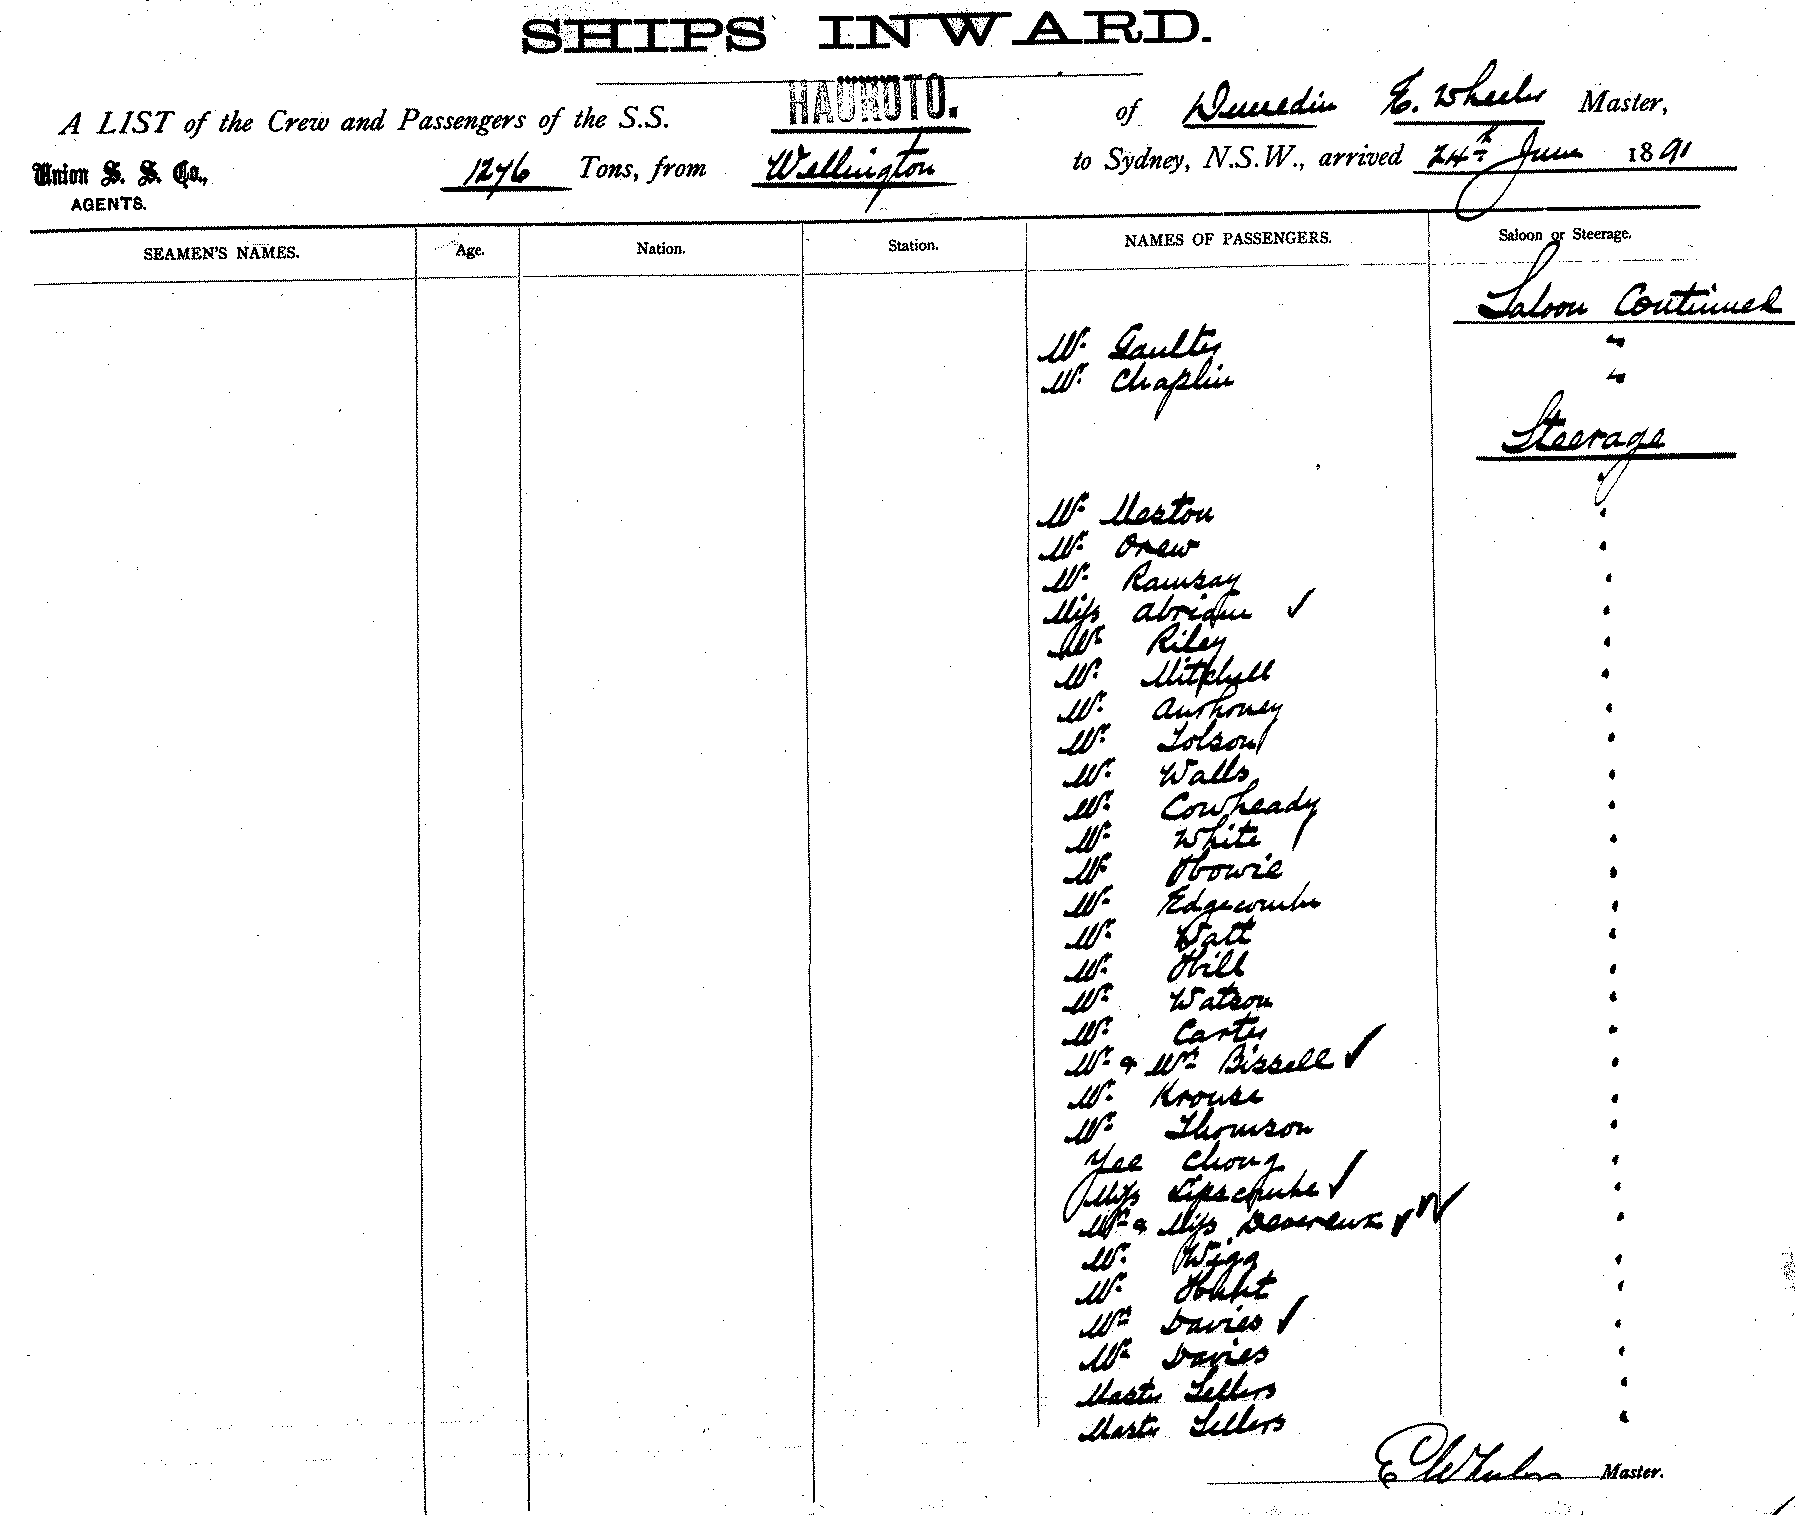 SHIPS INWARD.
A LIST of the Crew and Passengers of the S.S. HAUROTO. of Dunedin E. Wheeler Master,
Union S. S. Co., AGENTS. 1276 Tons, from Wellington to Sydney, N.S.W., arrived 24th June 1891
SEAMEN'S NAMES. Age. Nation. Station. NAMES OF PASSENGERS. Saloon or Steerage.
Saloon Continued
Mr Gaulter "
Mr Chaplin "
Steerage
Mr Meston "
Mr Drew "
Mr Ramsay "
Miss "
Mr Riley "
Mr Mitchell "
Mr "
Mr Tolson "
Mr Walls "
Mr Cowheady "
Mr White "
Mr Howie "
Mr Edgecombe "
Mr Watt "
Mr Hill "
Mr Watson "
Mr Carter "
Mr & Mrs Bissell ✓ "
Mr Krouse "
Mr Thomson "
Yee Chong "
Miss Lipscombe ✓ "
Mrs & Miss Devereux ✓ "
Mr Wigg "
Mr "
Mrs Davies ✓ "
Mr Davies "
Master Sellers "
Master Sellers "
E Wheeler Master.